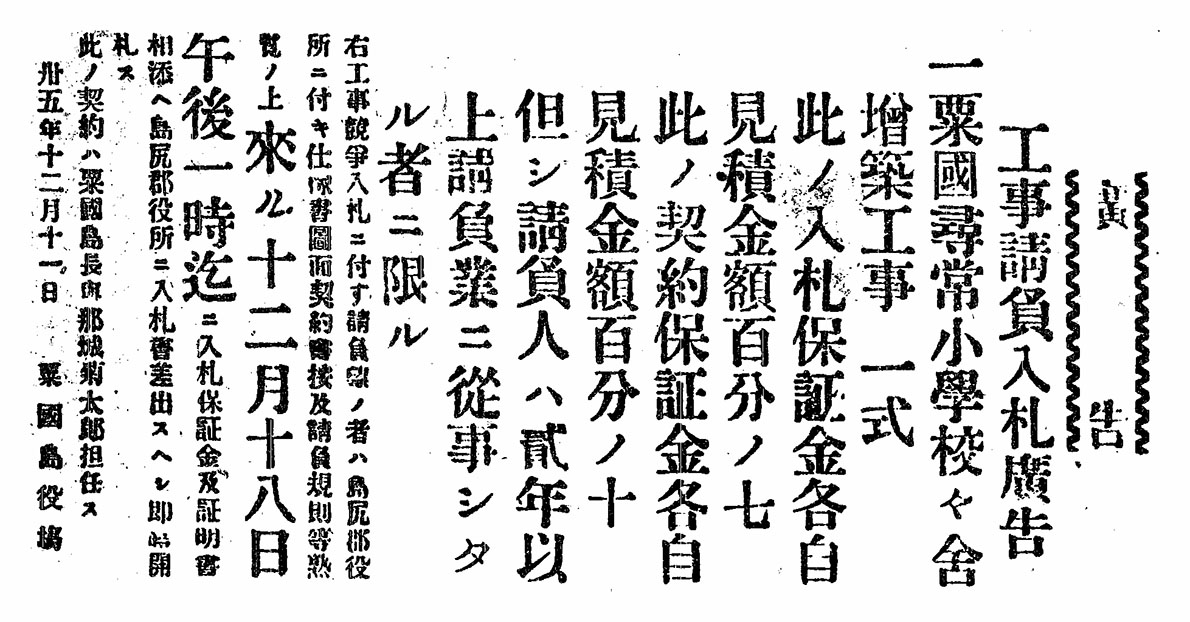 廣告
工事請負入札廣告
一粟國尋常小學校々舍
増築工事 一式
此ノ入札保証金各自
見積金額百分ノ七
此ノ契約保証金各自
見積金額百分ノ十
但シ請負人ハ貳年以
上請負業ニ從事シタ
ル者ニ限ル
右工事競爭入札ニ付す請負望ノ者ハ島尻郡役
所ニ付キ仕樣書圖面契約書按及請負規則等熟
覽ノ上來ル十二月十八日
午後一時迄ニ入札保証金及証明書
相添ヘ島尻郡役所ニ入札書差出スヘシ即時開
札ス
此ノ契約ハ粟國島長與那城菊太郎担任ス
卅五年十二月十一日 粟國島役塲